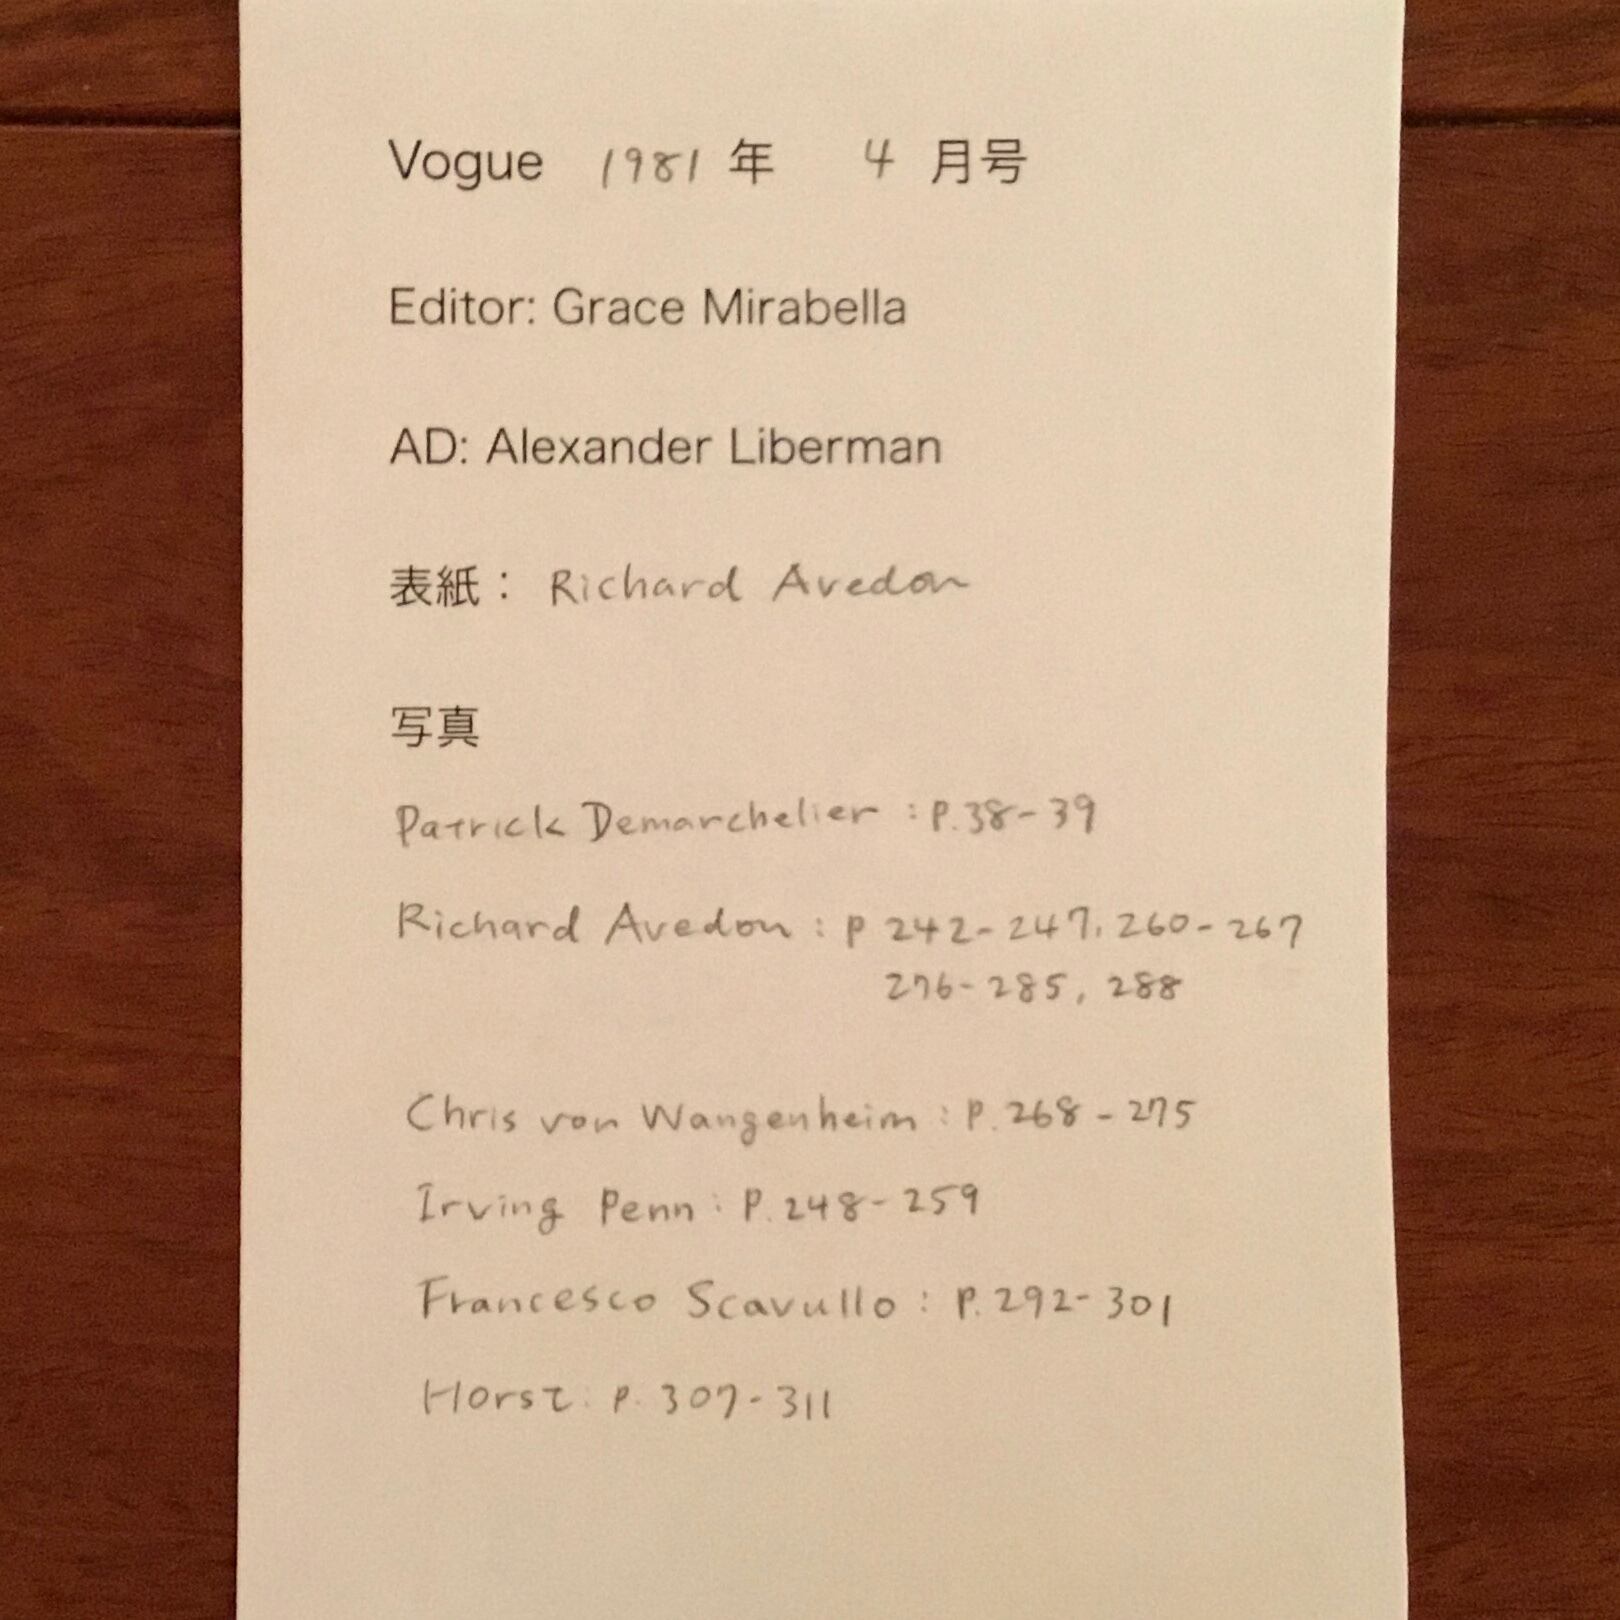 Vogue 1981 年 4 月号
Editor: Grace Mirabella
AD: Alexander Liberman
表紙： Richard Avedon
写真
Patrick Demarchelier : P.38-39
Richard Avedon : P 242-247, 260-267
276-285, 288
Chris von Wangenheim : P.268-275
Irving Penn : P.248-259
Francesco Scavullo : P.292-301
Horst : P.307-311